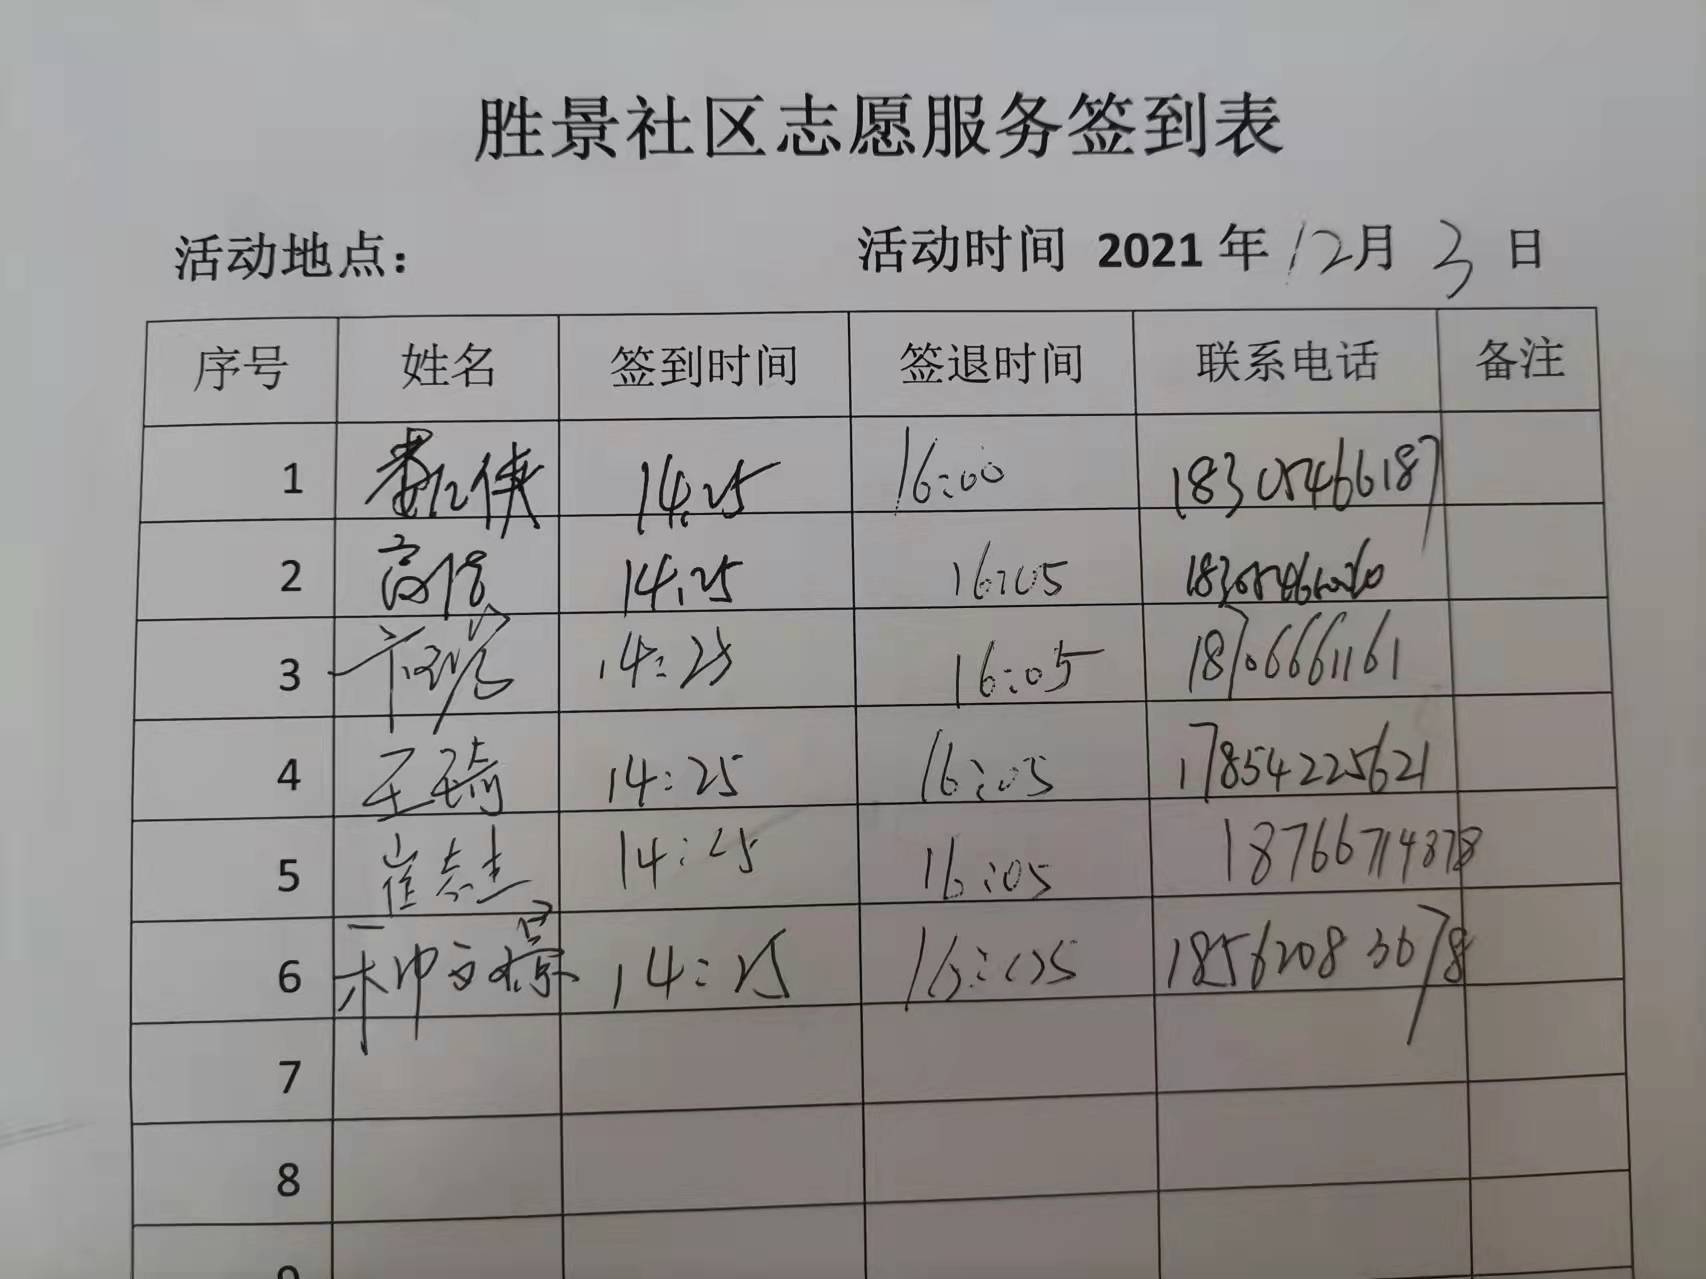 胜景社区志愿服务签到表
活动地点： 活动时间 2021年12月3日
序号 姓名 签到时间 签退时间 联系电话 备注
1 14:25 16:00 18305466187
2 高 14:25 16:05
3 14:25 16:05 18706661161
4 王琦 14:25 16:05 17854225621
5 崔志杰 14:25 16:05 18766714878
6 14:25 16:05 18562083678
7
8
9